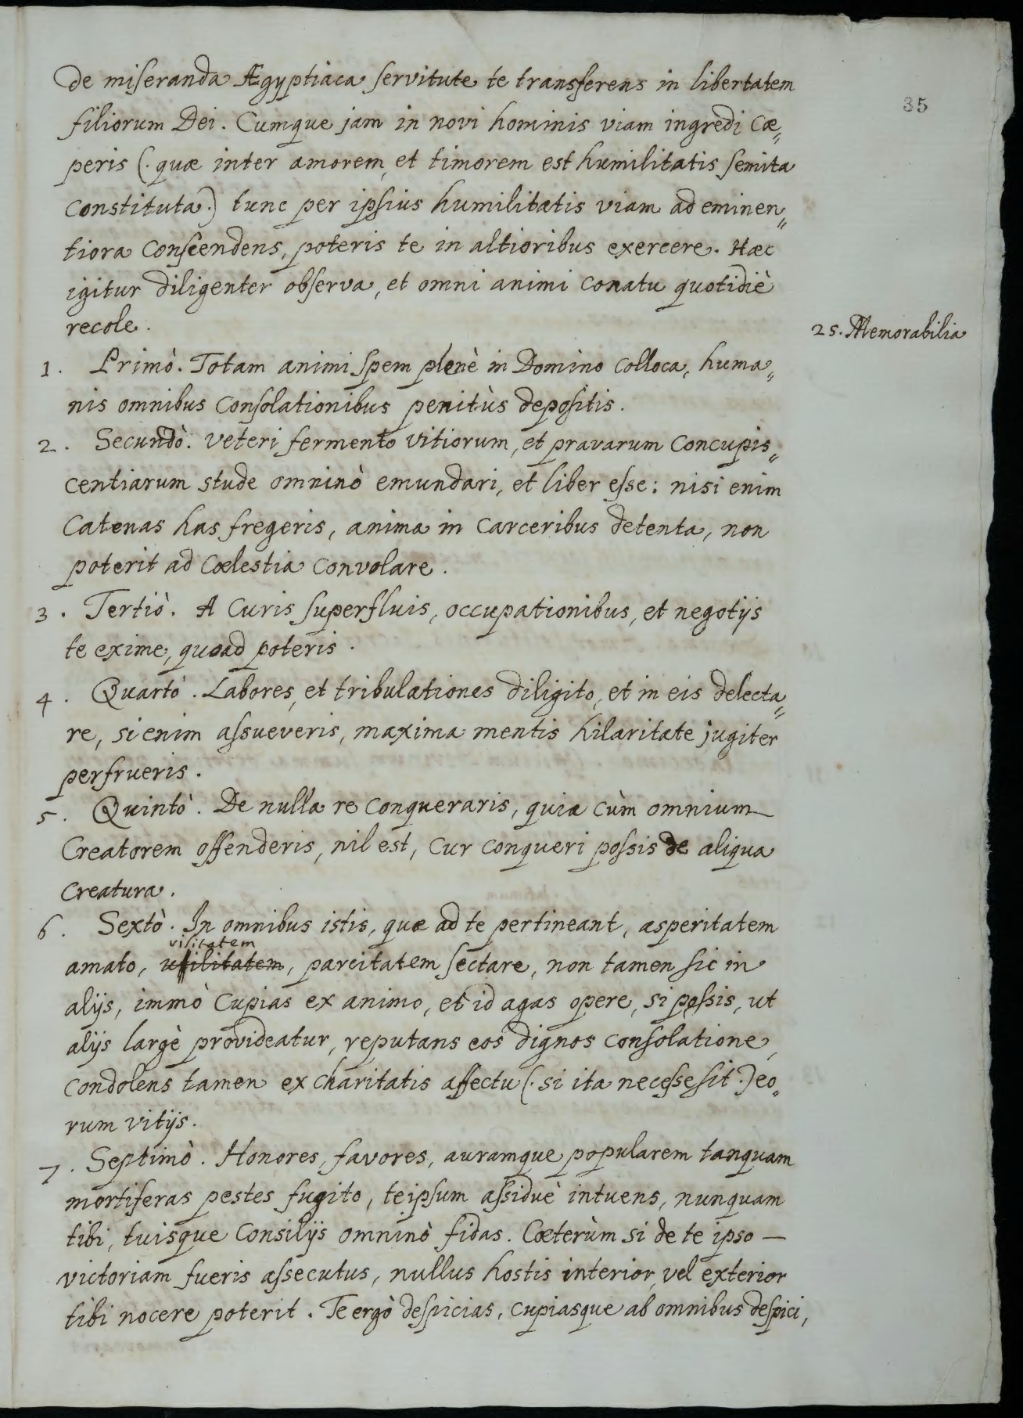 35
de miseranda Ægyptiaca servitute te transferens in libertatem
filiorum Dei. Cumque jam in novi hominis viam ingredi cæ„
peris (. quæ inter amorem, et timorem est humilitatis semita
constituta.) tunc per ipsius humilitatis viam ad eminen„
tiora conscendens, poteris te in altioribus exercere. Hæc
igitur diligenter observa, et omni animi conatu quotidiè
recole.
25. Memorabilia
1. Primò. Totam animi spem plenè in Domino colloca, huma„
nis omnibus consolationibus penitùs depositis.
2. Secundò. veteri fermento vitiorum, et pravarum concupis„
centiarum stude omninò emundari, et liber esse: nisi enim
catenas has fregeris, anima in carceribus detenta, non
poterit ad cœlestia convolare.
3. Tertiò. A curis superfluis, occupationibus, et negotijs
te exime, quoad poteris.
4. Quartò. Labores, et tribulationes diligito, et in eis delecta„
re, si enim assueveris, maxima mentis hilaritate jugiter
perfrueris.
5. Quintò. De nulla re conqueraris, quia cùm omnium
Creatorem offenderis, nil est, cur conqueri possis de aliqua
creatura.
6. Sextò. In omnibus istis, quæ ad te pertineant, asperitatem
vilitatem
amato, utilitatem, parcitatem sectare, non tamen sic in
alijs, immò cupias ex animo, et id agas opere, si possis, ut
alijs largè provideatur, reputans eos dignos consolatione,
condolens tamen ex charitatis affectu (. si ita necesse sit.) eo„
rum vitijs.
7. Septimò. Honores, favores, auramque popularem tanquam
mortiferas pestes fugito, teipsum assiduè intuens, nunquam
tibi, tuisque consilijs omninò fidas. Cæterùm si de te ipso —
victoriam fueris assecutus, nullus hostis interior, vel exterior
tibi nocere poterit. Te ergò despicias, cupiasque ab omnibus despici,